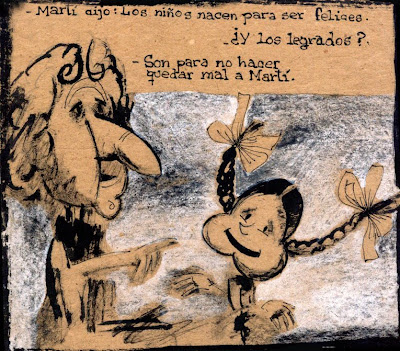 - Martí dijo: Los niños nacen para ser felices.
- ¿Y los legrados?.
- Son para no hacer
quedar mal a Martí.